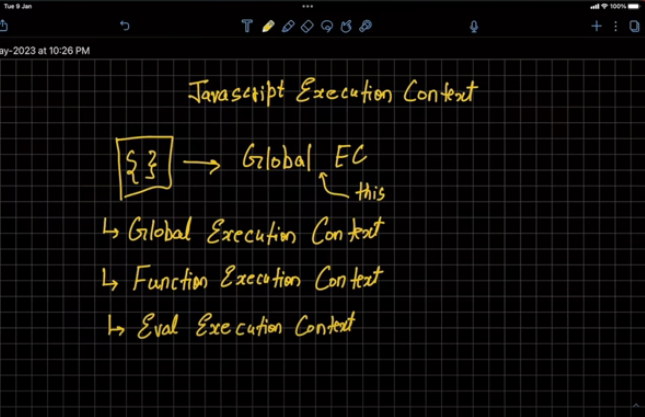 Tue 9 Jan
100%
ay-2023 at 10:26 PM
Javascript Execution Context
{ } → Global EC
this
↳ Global Execution Context
↳ Function Execution Context
↳ Eval Execution Context